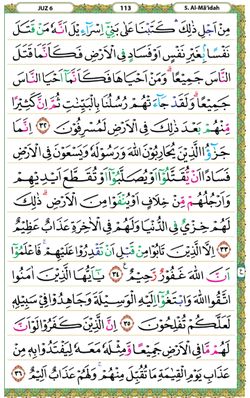 JUZ 6 113 5. Al-Mā'idah
مِنْ اَجْلِ ذٰلِكَ ۛ كَتَبْنَا عَلٰى بَنِيْٓ اِسْرَاۤءِيْلَ اَنَّهٗ مَنْ قَتَلَ
نَفْسًا ۢ بِغَيْرِ نَفْسٍ اَوْ فَسَادٍ فِى الْاَرْضِ فَكَاَنَّمَا قَتَلَ
النَّاسَ جَمِيْعًا ۗ وَمَنْ اَحْيَاهَا فَكَاَنَّمَآ اَحْيَا النَّاسَ
جَمِيْعًا ۗ وَلَقَدْ جَاۤءَتْهُمْ رُسُلُنَا بِالْبَيِّنٰتِ ثُمَّ اِنَّ كَثِيْرًا
مِّنْهُمْ بَعْدَ ذٰلِكَ فِى الْاَرْضِ لَمُسْرِفُوْنَ ٣٢ اِنَّمَا
جَزٰۤؤُا الَّذِيْنَ يُحَارِبُوْنَ اللّٰهَ وَرَسُوْلَهٗ وَيَسْعَوْنَ فِى الْاَرْضِ
فَسَادًا اَنْ يُّقَتَّلُوْٓا اَوْ يُصَلَّبُوْٓا اَوْ تُقَطَّعَ اَيْدِيْهِمْ
وَاَرْجُلُهُمْ مِّنْ خِلَافٍ اَوْ يُنْفَوْا مِنَ الْاَرْضِ ۗ ذٰلِكَ
لَهُمْ خِزْيٌ فِى الدُّنْيَا وَلَهُمْ فِى الْاٰخِرَةِ عَذَابٌ عَظِيْمٌ ٣٣
اِلَّا الَّذِيْنَ تَابُوْا مِنْ قَبْلِ اَنْ تَقْدِرُوْا عَلَيْهِمْ ۚ فَاعْلَمُوْٓا
اَنَّ اللّٰهَ غَفُوْرٌ رَّحِيْمٌ ٣٤ يٰٓاَيُّهَا الَّذِيْنَ اٰمَنُوا
اتَّقُوا اللّٰهَ وَابْتَغُوْٓا اِلَيْهِ الْوَسِيْلَةَ وَجَاهِدُوْا فِيْ سَبِيْلِهٖ
لَعَلَّكُمْ تُفْلِحُوْنَ ٣٥ اِنَّ الَّذِيْنَ كَفَرُوْا لَوْ اَنَّ
لَهُمْ مَّا فِى الْاَرْضِ جَمِيْعًا وَّمِثْلَهٗ مَعَهٗ لِيَفْتَدُوْا بِهٖ مِنْ
عَذَابِ يَوْمِ الْقِيٰمَةِ مَا تُقُبِّلَ مِنْهُمْ ۚ وَلَهُمْ عَذَابٌ اَلِيْمٌ ٣٦